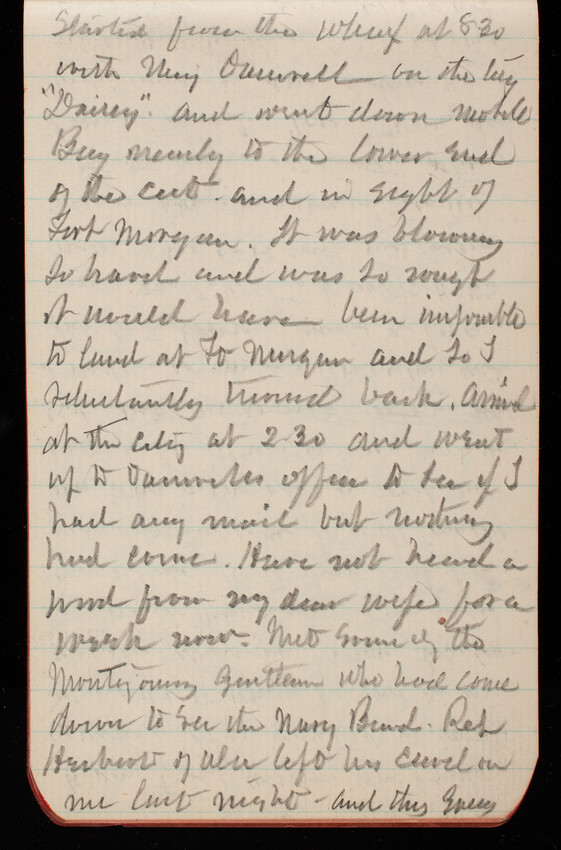 Started from the wharf at 8 30
with Maj Damrell on the tug
"Daisey" and went down Mobile
Bay nearly to the lower end
of the cut - and in sight of
Fort Morgan. It was blowing
so hard and was so rough
it would have been impossible
to land at Ft Morgan and so I
reluctantly turned back. Arrived
at the city at 2 30 and went
up to Damrells office to see if I
had any mail but nothing
had come. Have not heard a
word from my dear wife for a
week now - Met some of the
Montgomery gentlemen who had come
down to see the Navy Board. Rep
Herbert of Ala left his card on
me last night - and this